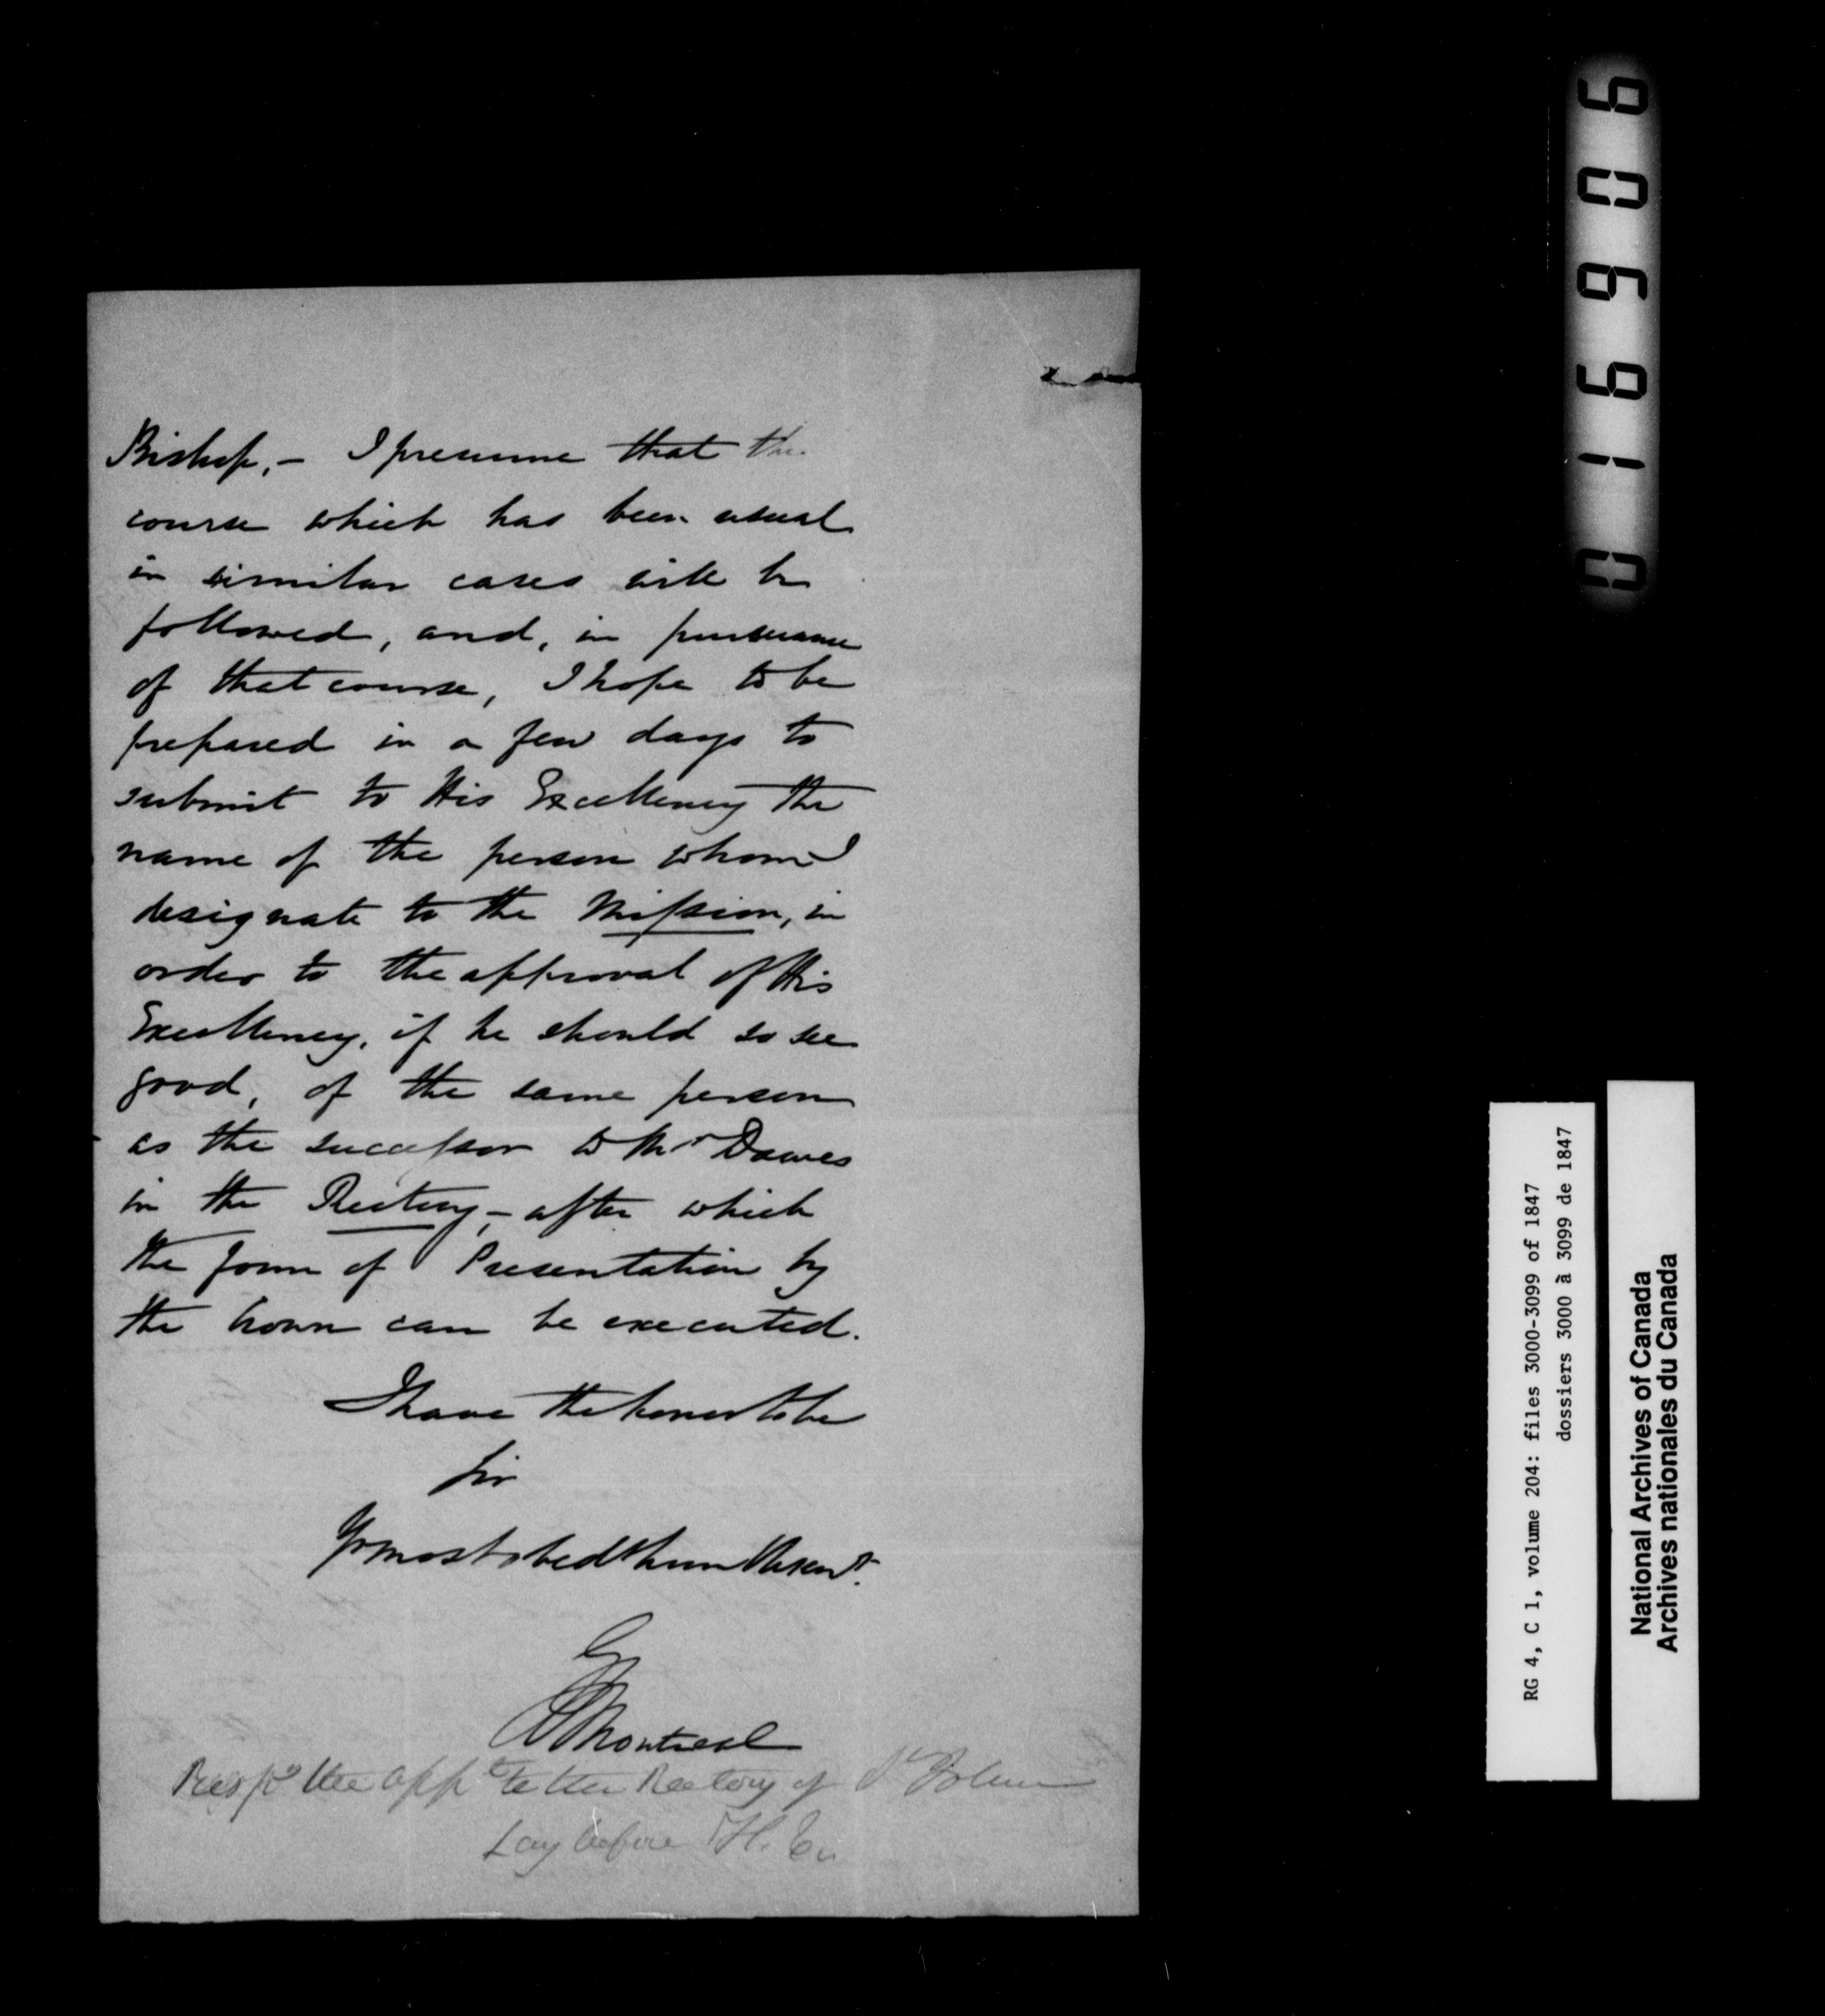 Bishop, – I presume that the
course which has been usual
in similar cases will be
followed, and, in pursuance
of that course, I hope to be
prepared in a few days to
submit to His Excellency the
name of the person whom I
designate to the Mission, in
order to the approval of His
Excellency, if he should so see
good, of the same person
as the successor to Mr Dawes
in the Rectory, – after which
the form of Presentation by
the Crown can be executed.
I have the honor to be
Sir
Yr most obedt humble servt.
G J Montreal
Resp the app to the Rectory of St Johns
Lay before H. Ex
016906
RG 4, C 1, volume 204: files 3000-3099 of 1847
dossiers 3000 à 3099 de 1847
National Archives of Canada
Archives nationales du Canada